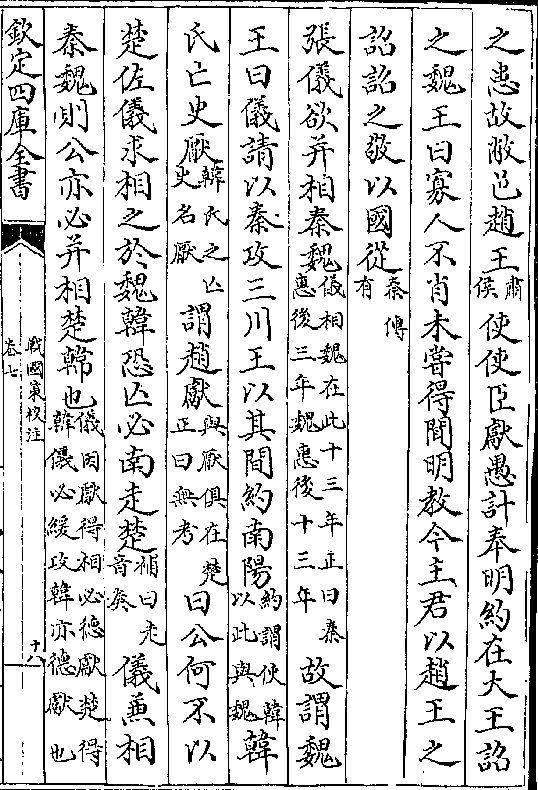 之患故敝邑趙王肅侯使使臣獻愚計奉明約在大王詔
之魏王曰寡人不肖未嘗得聞明教今主君以趙王之
詔詔之敬以國從秦傳有
張儀欲并相秦魏儀相魏在此十三年正曰秦惠後三年魏惠後十三年故謂魏
王曰儀請以秦攻三川王以其間約南陽約謂使韓以此與魏韓
氏亡史厭韓氏之亾史名厭謂趙獻與厭俱在楚正曰無考曰公何不以
楚佐儀求相之於魏韓恐亾必南走楚補曰走音奏儀兼相
秦魏則公亦必并相楚韓也儀因獻得相必德獻楚得韓儀必緩攻韓亦德獻也
欽定四庫全書
戰國策校注
卷七
十八